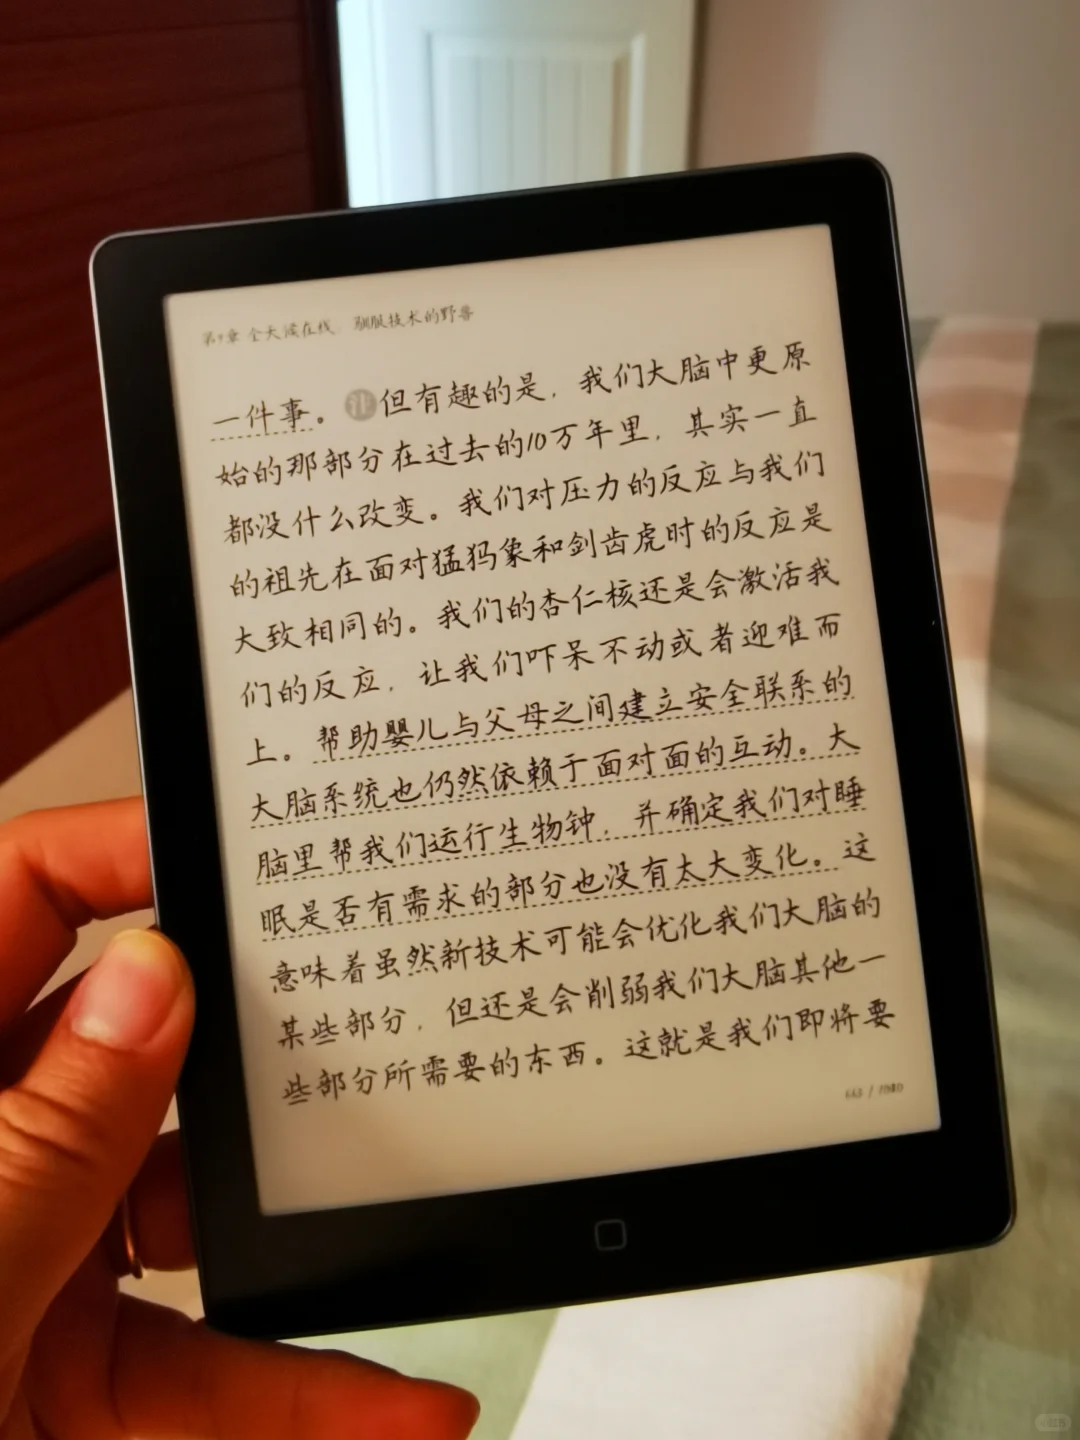 第9章 全天候在线：驯服技术的野兽
一件事。注但有趣的是，我们大脑中更原
始的那部分在过去的10万年里，其实一直
都没什么改变。我们对压力的反应与我们
的祖先在面对猛犸象和剑齿虎时的反应是
大致相同的。我们的杏仁核还是会激活我
们的反应，让我们吓呆不动或者迎难而
上。帮助婴儿与父母之间建立安全联系的
大脑系统也仍然依赖于面对面的互动。大
脑里帮我们运行生物钟，并确定我们对睡
眠是否有需求的部分也没有太大变化。这
意味着虽然新技术可能会优化我们大脑的
某些部分，但还是会削弱我们大脑其他一
些部分所需要的东西。这就是我们即将要